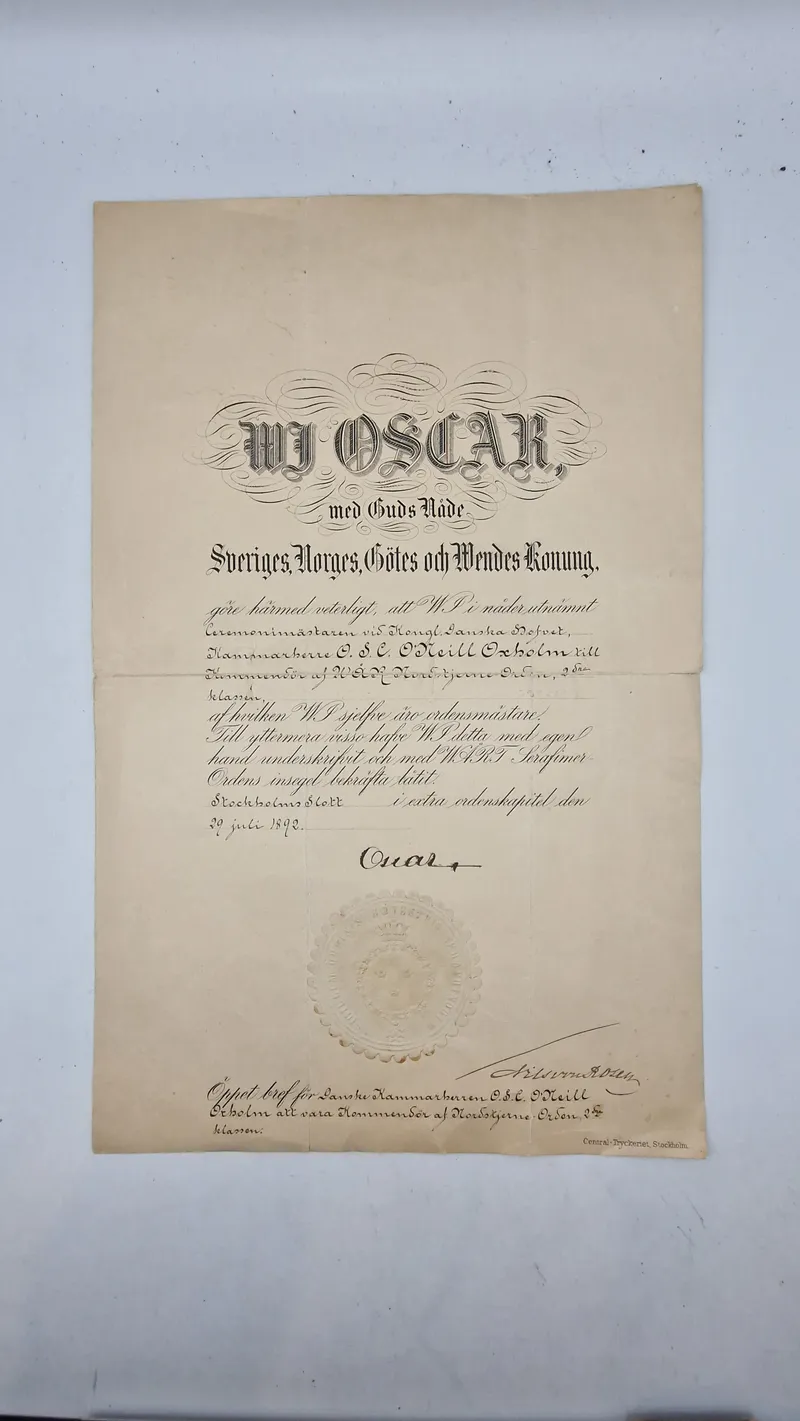 WJ OSCAR,
med Guds Nåde
Sveriges, Norges, Götes och Wendes Konung,
göre härmed veterligt, att WJ i nåder utnämnt
Ceremonimästaren vid Kongl. Danska Hofvet,
Kammarherre O. S. C. O'Neill Oxholm till
Kommendör af W.Å.K. Nordstjerne-Orden, 2dra
klassen,
af hvilken WJ sjelfve äro ordensmästare.
Till yttermera visso hafve WJ detta med egen
hand underskrifvit och med WÅRT Serafimer-
Ordens insegel bekräfta låtit.
Stockholms Slott i extra ordenskapitel den
29 juli 1892.
Oscar
Nils von Rosen
Öppet bref för Danske Kammarherren O. S. C. O'Neill
Oxholm att vara Kommendör af Nordstjerne-Orden, 2dra
klassen.
Central-Tryckeriet, Stockholm.